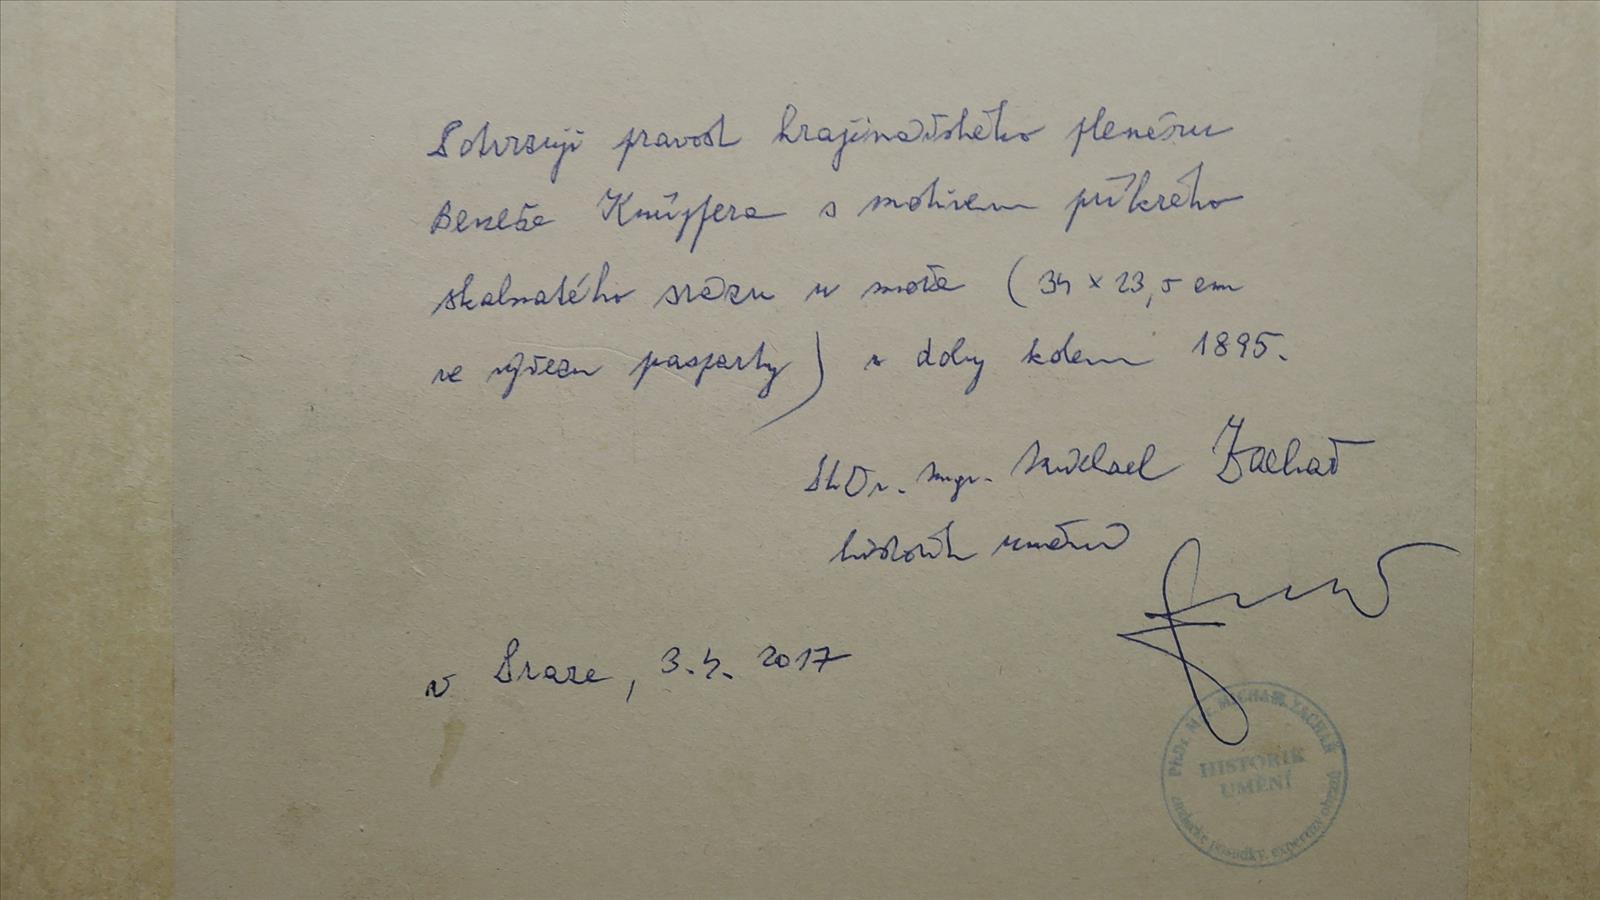 Potvrzuji pravost krajinářského plenéru
Beneše Knüpfera s motivem příkrého
skalnatého srázu u moře (34 x 23,5 cm
ve výřezu pasparty) z doby kolem 1895.
PhDr. Mgr. Michael Zachař
historik umění
v Praze, 3.4. 2017
PhDr. Mgr. MICHAEL ZACHAŘ
HISTORIK
UMĚNÍ
znalecké posudky, expertizy obrazů